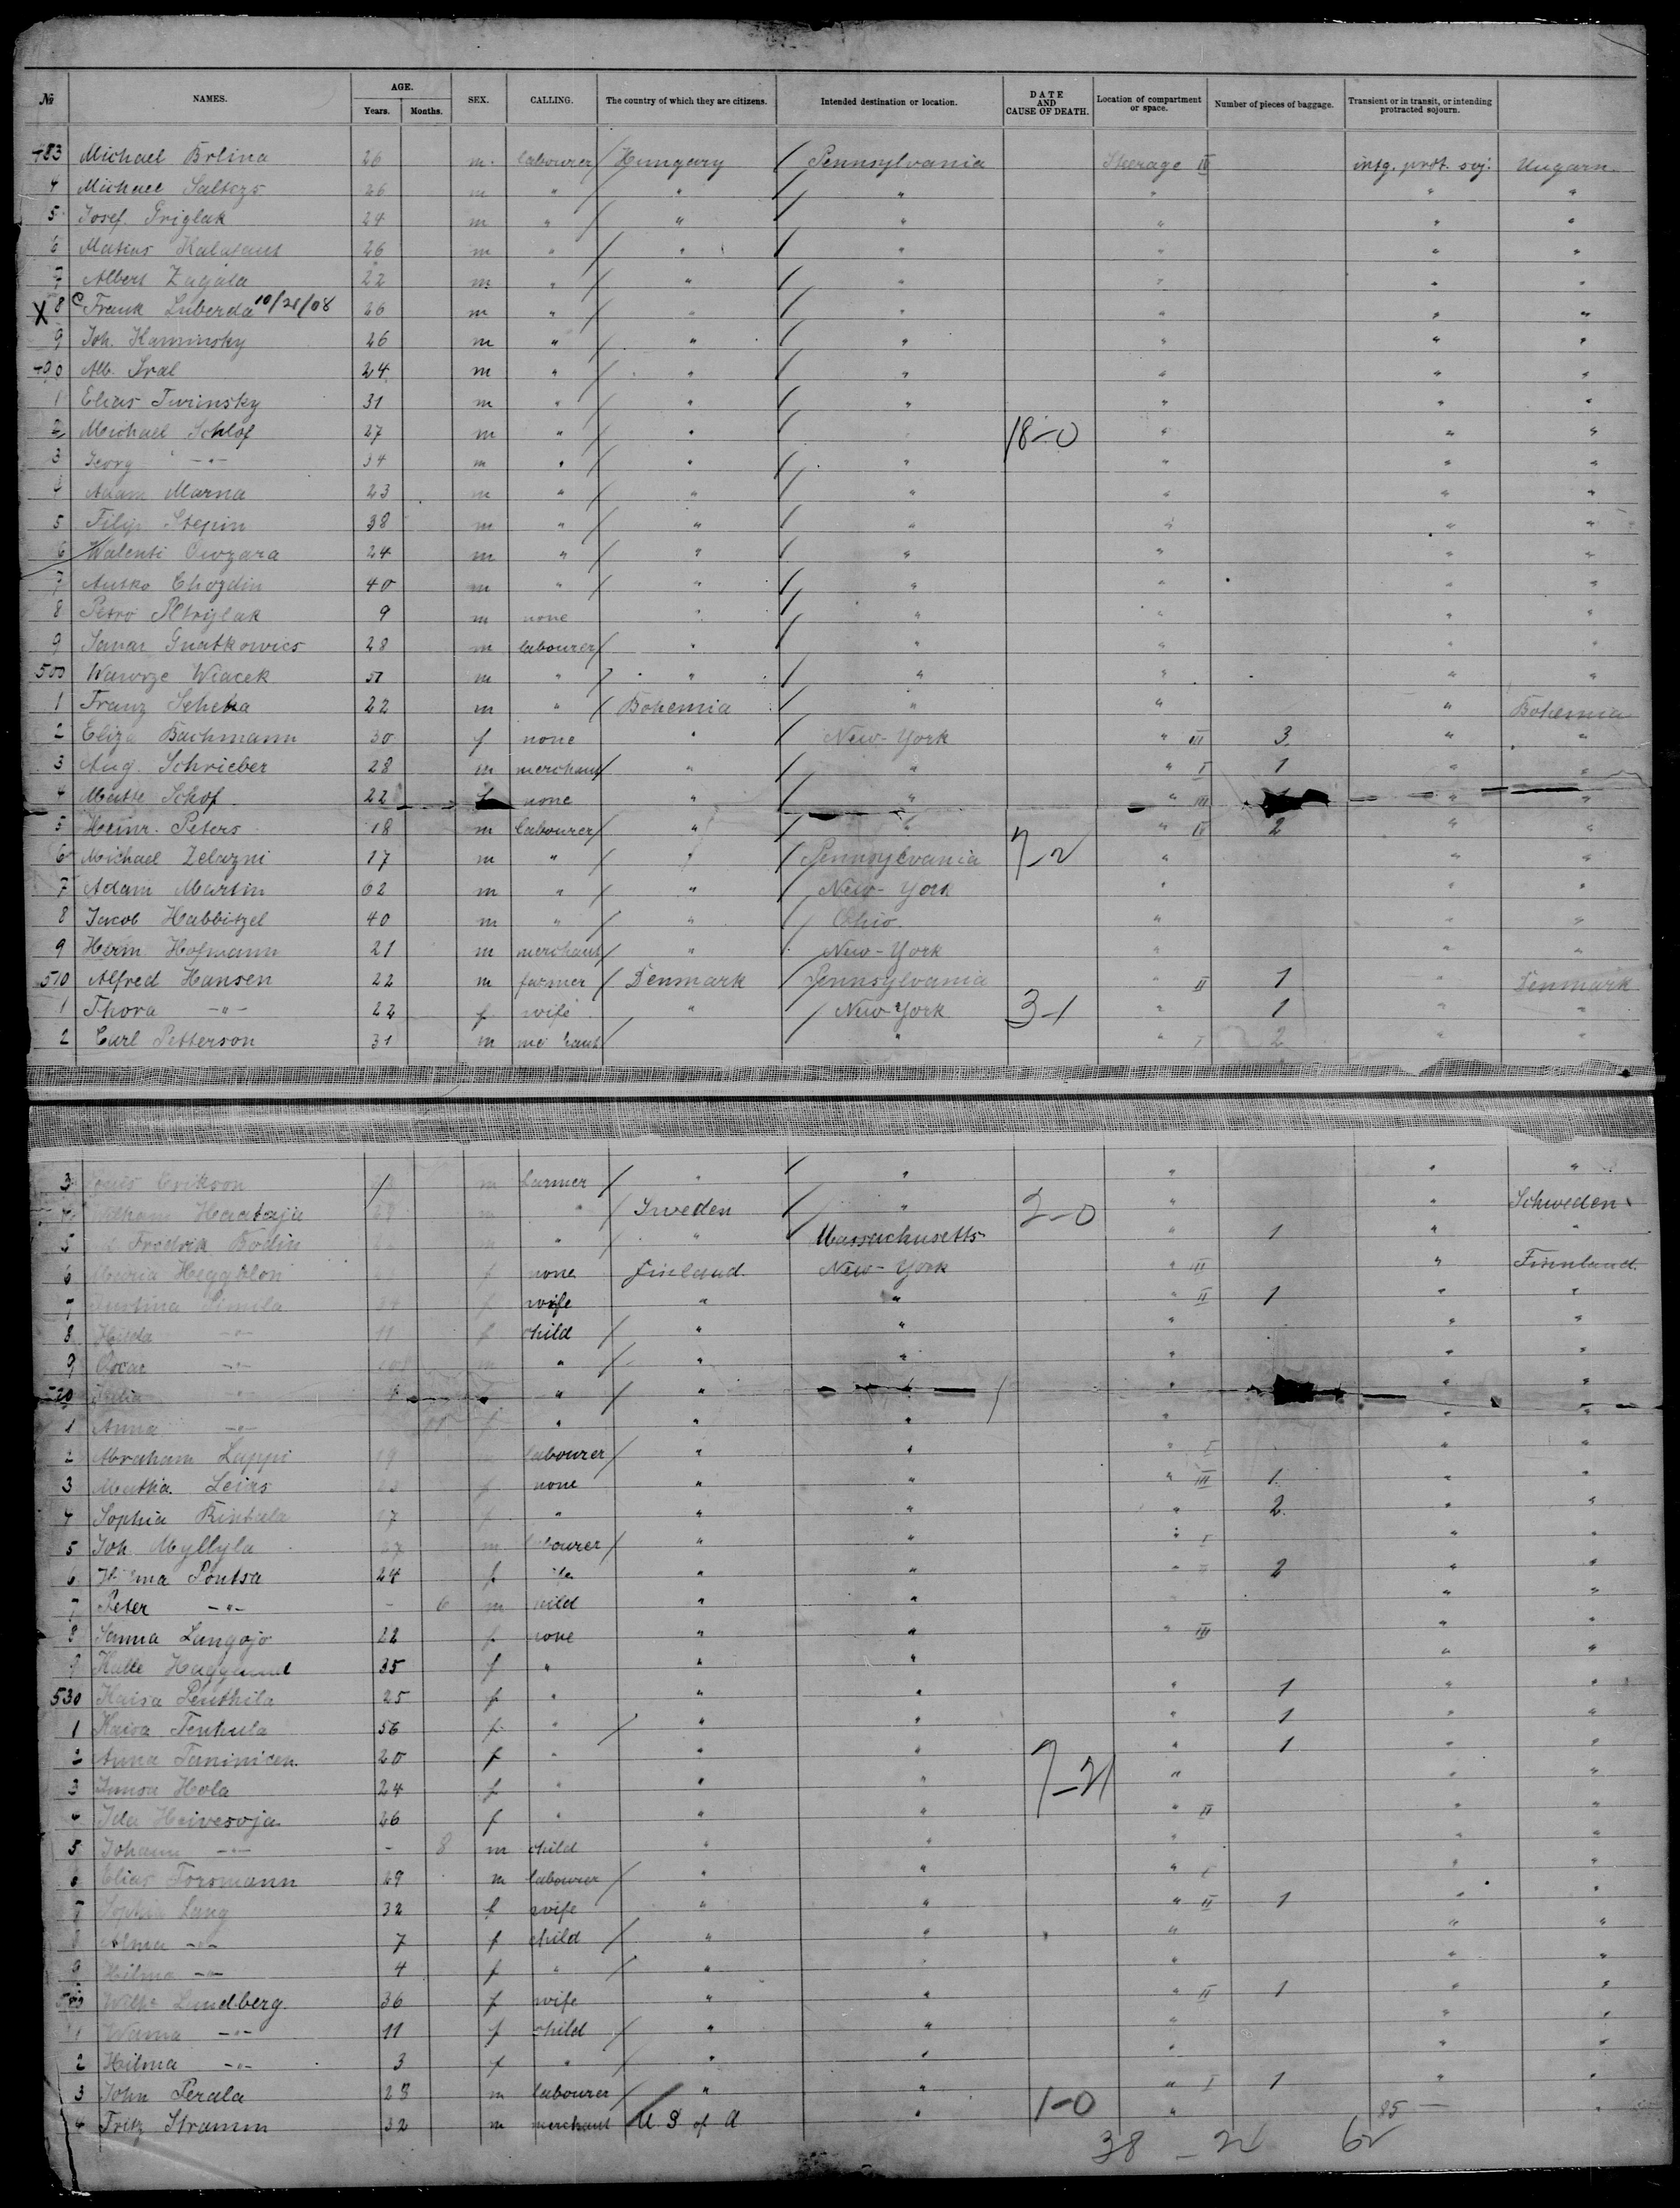 № NAMES. AGE. Years. Months. SEX. CALLING. The country of which they are citizens. Intended destination or location. DATE AND CAUSE OF DEATH. Location of compartment or space. Number of pieces of baggage. Transient or in transit, or intending protracted sojourn.
483 Michael Brlina 26 m. labourer / Hungary / Pennsylvania Steerage IV intg. prot. soj. Ungarn
4 Michael 26 m " / " / " " " "
5 Josef Griglak 24 m " / " / " " " "
6 26 m " / " / " " " "
7 Albert Zagala 22 m " / " / " " " "
X 8 c Frank Luberda 10/28/08 26 m " / " / " " " "
9 Joh. Kaminsky 26 m " / " / " " " "
490 Alb. Iral 24 m " / " / " " " "
1 Elias Twinsky 31 m " / " / " " " "
2 Michael Schlof 27 m " / " / 18-0 " " "
3 Georg -"- 34 m " / " / " " " "
4 Adam Marna 23 m " / " / " " " "
5 Filip Stepin 38 m " / " / " " " "
6 Walenti 24 m " / " / " " " "
7 Chozdin 40 m " / " / " " " "
8 Petro Petrylak 9 m none " / " " " "
9 Gnatkowics 28 m labourer / " / " " " "
500 Wawrze Wiacek m " / " / " " " "
1 Franz 22 m " / Bohemia / " " " Bohemia
2 Eliza Bachmann 30 f none " New-York " III 3 " "
3 Aug. Schrieber 28 m merchant / " / " " I 1 " "
4 Schof 22 f none " / " " III " "
5 Heinr. Peters 18 m labourer / " / " " IV 2 " "
6 Michael Zelazni 17 m " / " / Pennsylvania 7-2 " " "
7 Adam Martin 62 m " / " / New-York " " "
8 Jacob Habbitzel 40 m " / " / Ohio " " "
9 Herm. Hofmann 21 m merchant / " New-York " " "
510 Alfred Hansen 22 m farmer / Denmark / Pennsylvania " II 1 " Denmark
1 Thora -"- 22 f wife " / New-York 3-1 " 1 " "
2 Carl Petterson 31 m / / " " I 2 " "
3 Erikson m farmer / " / " " " "
Haataja m " Sweden / " 2-0 " " Schweden
5 Fredrik Bodin m " " Massachusetts " 1 " "
6 Maria f none Finland New-York " III " Finnland
7 Simila f wife " " " II 1 " "
8 Hilda -"- 11 f child / " " " " "
9 Oscar -"- m " / " " " " "
520 -"- " / " / " " "
1 Anna -"- f " " " " " "
2 Abraham Lappi 19 labourer / " " " I " "
3 Leias f none " " " III 1. " "
4 Sophia Rintala 17 f " " " " 2 " "
5 Joh. Myllyla m labourer / " " " I " "
6 Pontsa 24 f " " " II 2 " "
7 Peter -"- - 6 m child " " " "
8 Sanna Langojo 22 f none " " " III " "
9 Kalle Hagglund 35 f " " " " "
530 Kaisa Penthila 25 f " " " " 1 " "
1 Kaisa Tenhula 56 f " / " " " 1 " "
2 Anna 20 f " " " 7-21 " 1 " "
3 Hola 24 f " " " " " "
4 Ida Heivesoja 26 f " " " " II " "
5 Johann -"- - 8 m child " " " " "
6 Elias Forsmann 29 m labourer / " " " I " "
7 Sophia Lang 32 f wife " " " II 1 " "
8 Alma -"- 7 f child / " " " " "
9 Hilma -"- 4 f " / " " " " "
Lundberg 36 f wife " " " II 1 " "
1 -"- 11 f child / " " " " "
2 Hilma -"- 3 f " / " " " " "
3 John Perala 28 m labourer / " " " I 1 " "
4 Fritz Stramm 32 m merchant / U S of A " 1-0 " 85 "
38 - 24 62